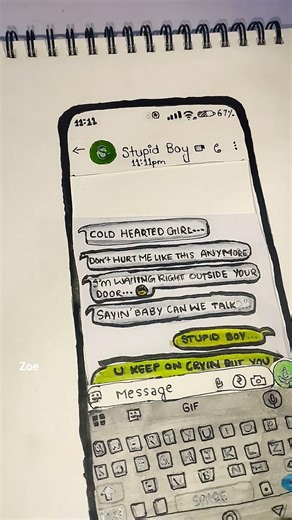 11:11
67%
Stupid Boy
11:11pm
COLD HEARTED GIRL...
DON'T HURT ME LIKE THIS ANYMORE
I'M WAITING RIGHT OUTSIDE YOUR
DOOR...
SAYIN' BABY CAN WE TALK
STUPID BOY...
U KEEP ON CRYIN BUT YOU
Zoe
Message
GIF
Q W E R T Y U I O P
A S D F G H J K L
Z X C V B N M
SPACE